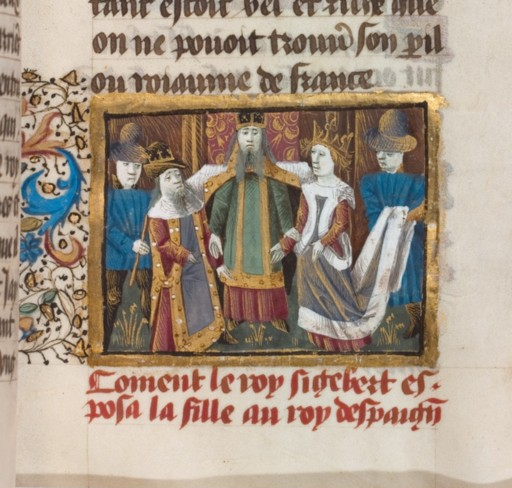 tant estoit bel et riche que
on ne pouoit trouu̅ son pil
ou roiaume de france
Coment le roy sigebert es-
posa la fille au roy despaign̄